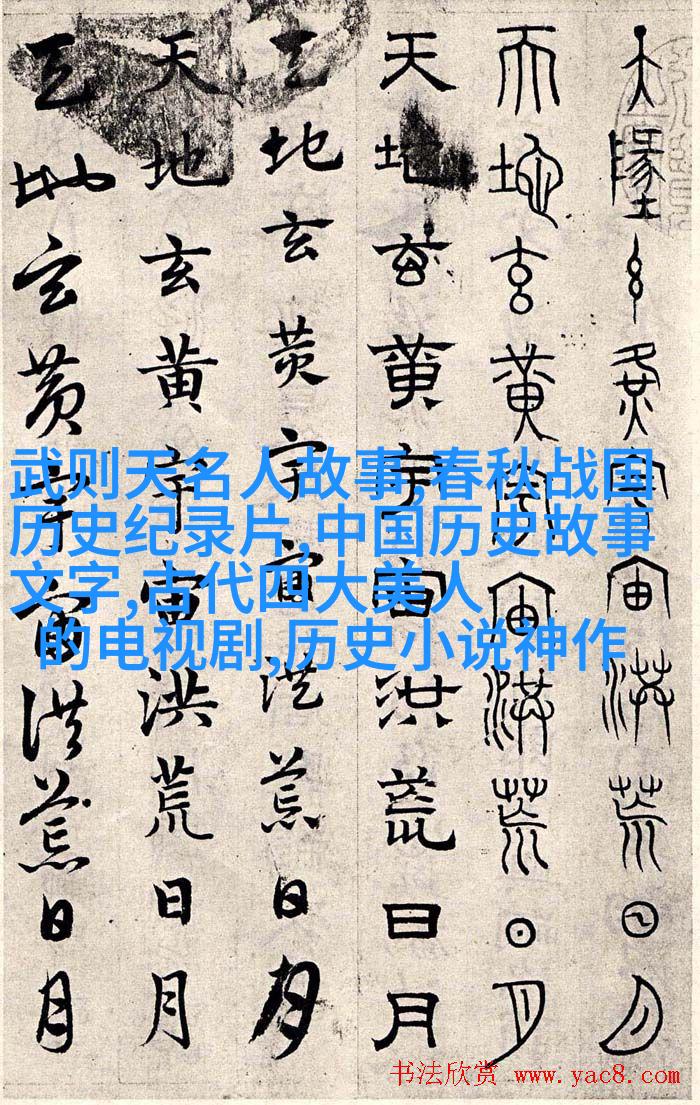 天墬玄黄宇宙洪荒日月
天地玄黄宇宙洪荒日月
天地玄黄宇宙洪荒日月
天地玄黄宇宙洪荒日月
天地玄黄宇宙洪荒日月
天地玄黄宇宙洪荒日月
武则天名人故事,春秋战国
历史纪录片,中国历史故事
文字,古代四大美人
的电视剧,历史小说神作
书法欣赏 www.yac8.com